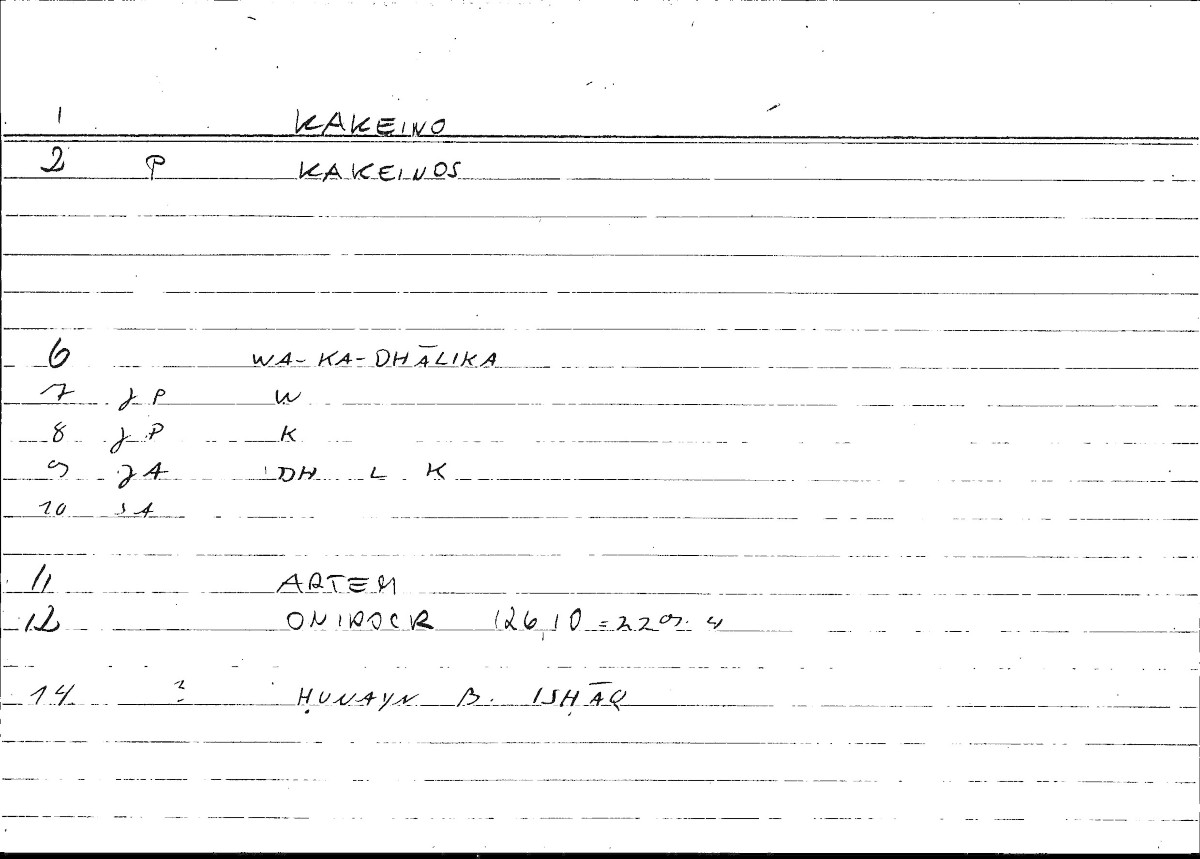 1 KAKEINO
2 P KAKEINOS
6 WA-KA-DHĀLIKA
7 P W
8 P K
9 A DH L K
10 SA
11 ARTEM
12 ONIROCR 126,10 = 229.4
14 ? ḤUNAYN B. ISḤĀQ